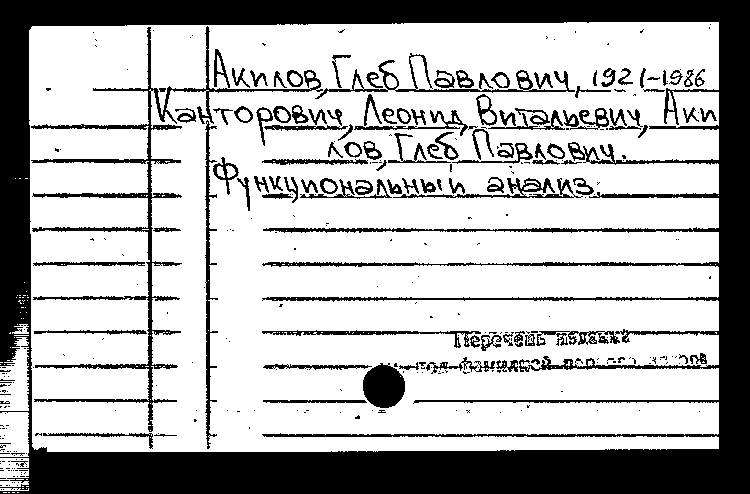 Акилов, Глеб Павлович, 1921-1986
Канторович, Леонид Витальевич, Аки
лов, Глеб Павлович.
Функциональный анализ.
Перечень изданий
под фамилией первого автора